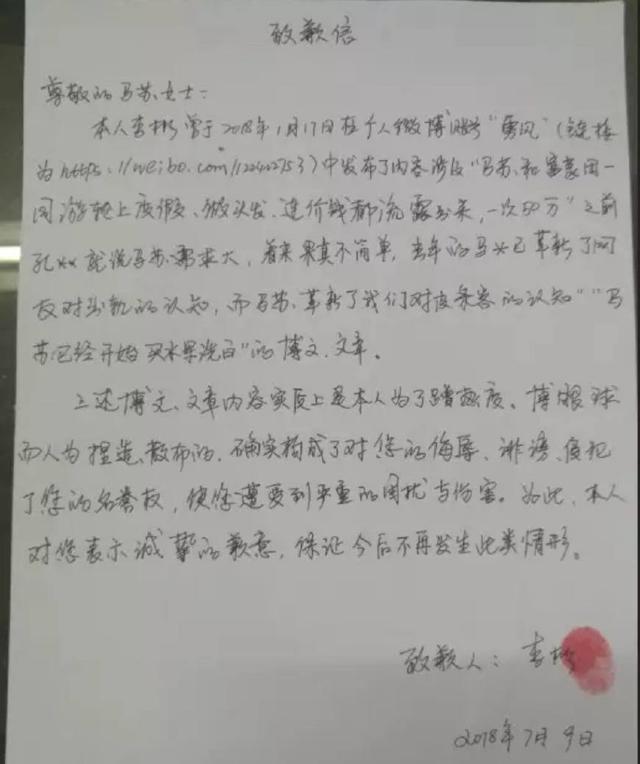 致歉信
尊敬的马苏女士:
本人李彬曾于2018年1月17日在个人微博账号"勇风"(链接
为https://weibo.com/122402753)中发布了内容涉及"马苏和富豪团一
同游艇上度假、做头发、造价钱都流露出来,一次50万"之前
孔xx就说马苏需求大,看来果真不简单,去年的马x已革新了网
友对出轨的认知,而马苏、革新了我们对度条客的认知""马
苏已经开始买水军洗白"的博文、文章。
上述博文、文章内容实质上是本人为了蹭热度、博眼球
而人为捏造、散布的,确实构成了对您的侮辱、诽谤、侵犯
了您的名誉权,使您遭受到严重的困扰与伤害。为此,本人
对您表示诚挚的歉意,保证今后不再发生此类情形。
致歉人:李彬
2018年7月9日